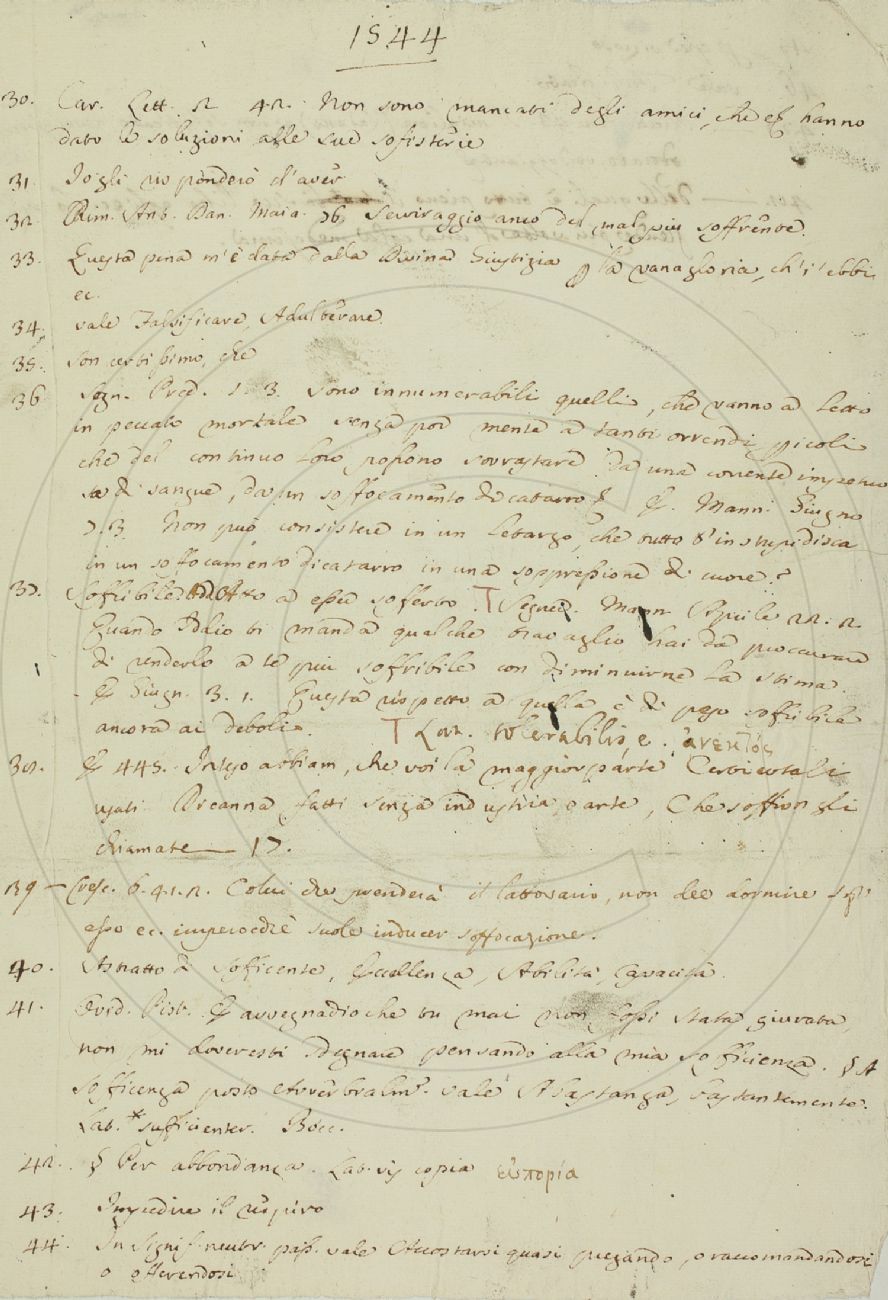 1544
30. Car. Lett. 2. 42. Non sono mancati degli amici, che gli hanno
dato le soluzioni alle sue sofisterie
31. Io gli risponderò d'aver
32. Rim. Ant. Dan. Maia. 76. Servi raggio anco del mal più soffrente.
33. Questa pena m'è data dalla Divina Giustizia p la vanagloria, ch'i' ebbi
ec.
34. vale Falsificare, Adulterare
35. son certissimo, che
36 Segn. Pred. 1. 3. sono innumerabili quelli, che vanno a letto
in peccato mortale senza por mente a tanti orrendi picoli
che del continuo loro possono sovrastare da una corrente impetuo
sa di sangue, da un soffocamento di catarro § E. Mann. Giugno
7. 3. Non può consistere in un letargo, che tutto t'instupidisca
in un soffocamento di catarro in una soppressione di cuore?
37. Soffribile Atto a esser sofferto. T Segner. Mann Aprile 22. 2
Quando Iddio ti manda qualche travaglio hai da proccurare
di renderlo a te più soffribile con diminuirne la stima.
E Giugn. 3. 1. Questa rispetto a quella è di peso soffribile
ancora ai deboli. T Lat. tolerabilis, e. ἀνεκτός
38. E 445. Inteso abbiam, che voi la maggior parte
usati Breanna fatti senza industria, o arte, Che soffion gli
chiamate — 17.
39 — Cresc. 6. 41. 2. Colui che prenderà il lattovario, non dee dormire sopr'
esso ec. imperocchè suole inducer soffocazione.
40. Astratto di Sofficente, Eccellenza, Abilità, Capacità.
41. Ovid. Pist. E avvegnadioche tu mai non fossi stata giurata,
non mi doveresti sdegnare pensando alla mia sofficienza. § A
Sofficenza posto Avverbialm. vale A bastanza, bastantemente.
Lat. * sufficienter. Bocc.
42. § Per abbondanza. Lat. copia εὐπορία
43. Impedire il respiro
44. In Signif. neutr. pass. vale Accostarsi quasi pregando, o raccomandandosi
o offerendosi